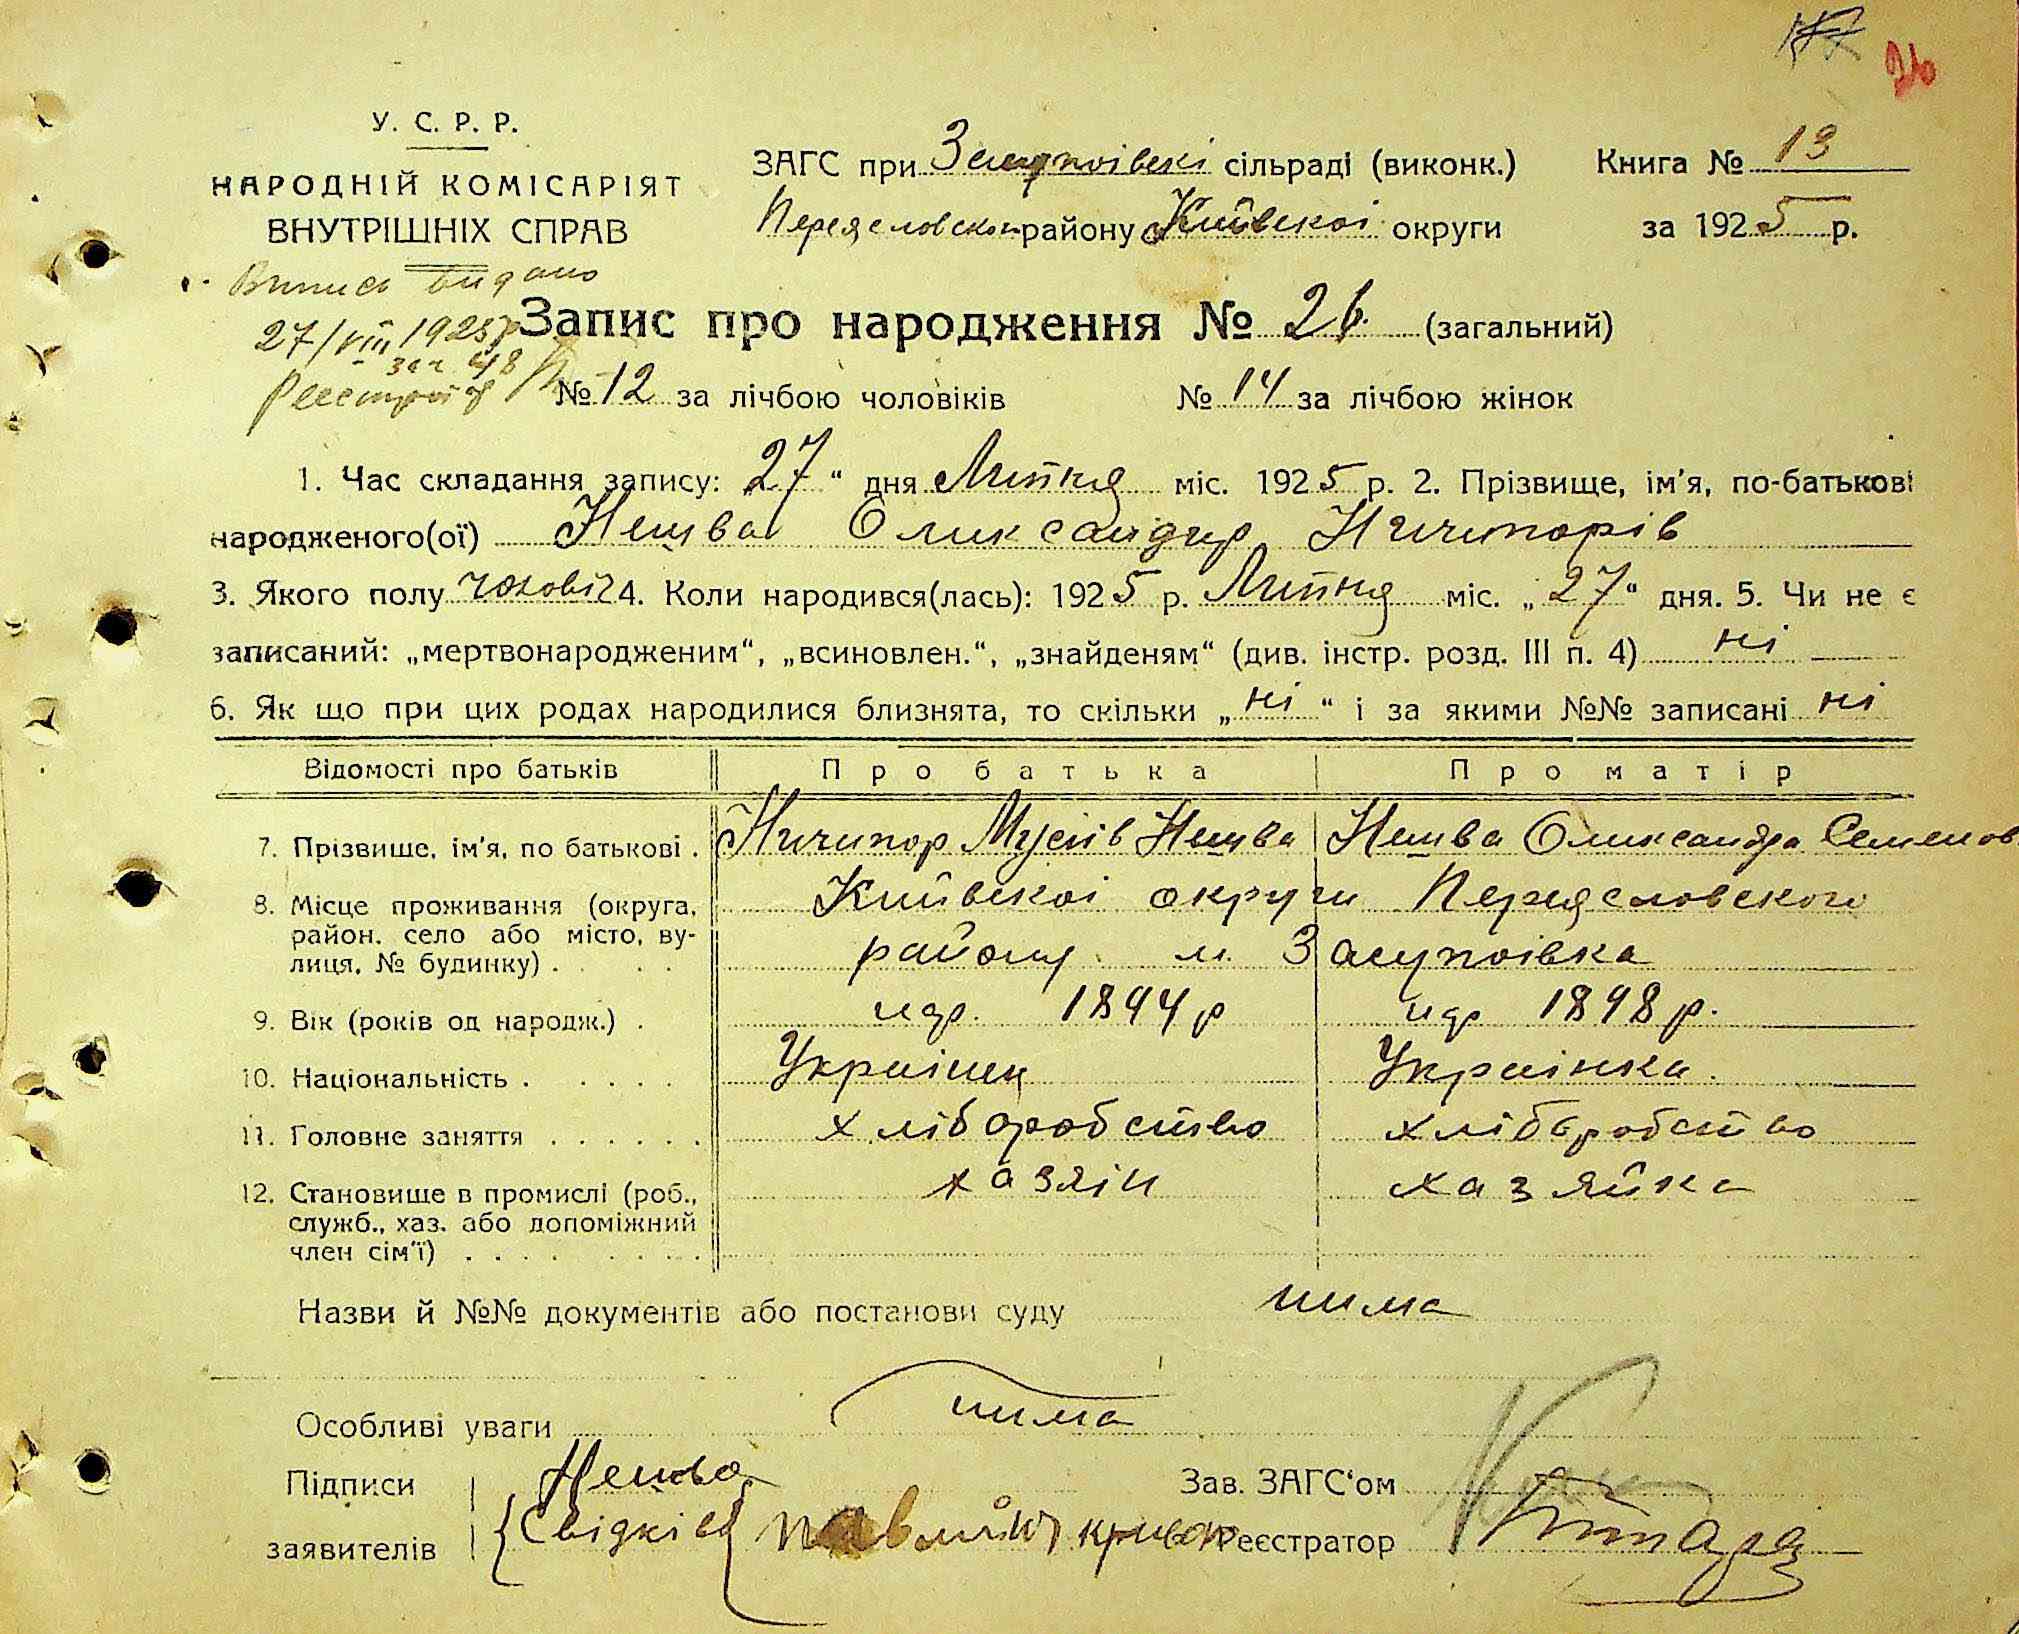 26
У. С. Р. Р.
НАРОДНІЙ КОМІСАРІЯТ
ВНУТРІШНІХ СПРАВ
ЗАГС при Засупоівскі сільраді (виконк.) Книга № 13
Переясловског району Київскоі округи за 1925 р.
Випись видано
27/VIII 1925р
Запис про народження № 26. (загальний)
№ 12 за лічбою чоловіків № 14 за лічбою жінок
1. Час складання запису: „27“ дня Липня міс. 1925 р. 2. Прізвище, ім'я, по-батькові
народженого(ої) Нешва Олександр Ничипорів
3. Якого полу чоловіч 4. Коли народився(лась): 1925 р. Липня міс. „27“ дня. 5. Чи не є
записаний: „мертвонародженим“, „всиновлен.“, „знайденям“ (див. інстр. розд. III п. 4) ні
6. Як що при цих родах народилися близнята, то скільки „ні“ і за якими №№ записані ні
Відомості про батьків Про батька Про матір
7. Прізвище, ім'я, по батькові . Ничипор Мусіів Нешва Нешва Олександра Семенов
8. Місце проживання (округа, район, село або місто, ву-лиця, № будинку) . Київскоі округи Переясловского
району м. Засупоівка
9. Вік (років од народж.) . нар. 1894 р нар 1898 р.
10. Національність . Украінец Украінка.
11. Головне заняття . хліборобство хліборобство
12. Становище в промислі (роб., хазяін хазяйка
служб., хаз. або допоміжний
член сім'ї) .
Назви й №№ документів або постанови суду нима
Особливі уваги нима
Підписи Нешва Зав. ЗАГС'ом
заявителів Свідків Реєстратор